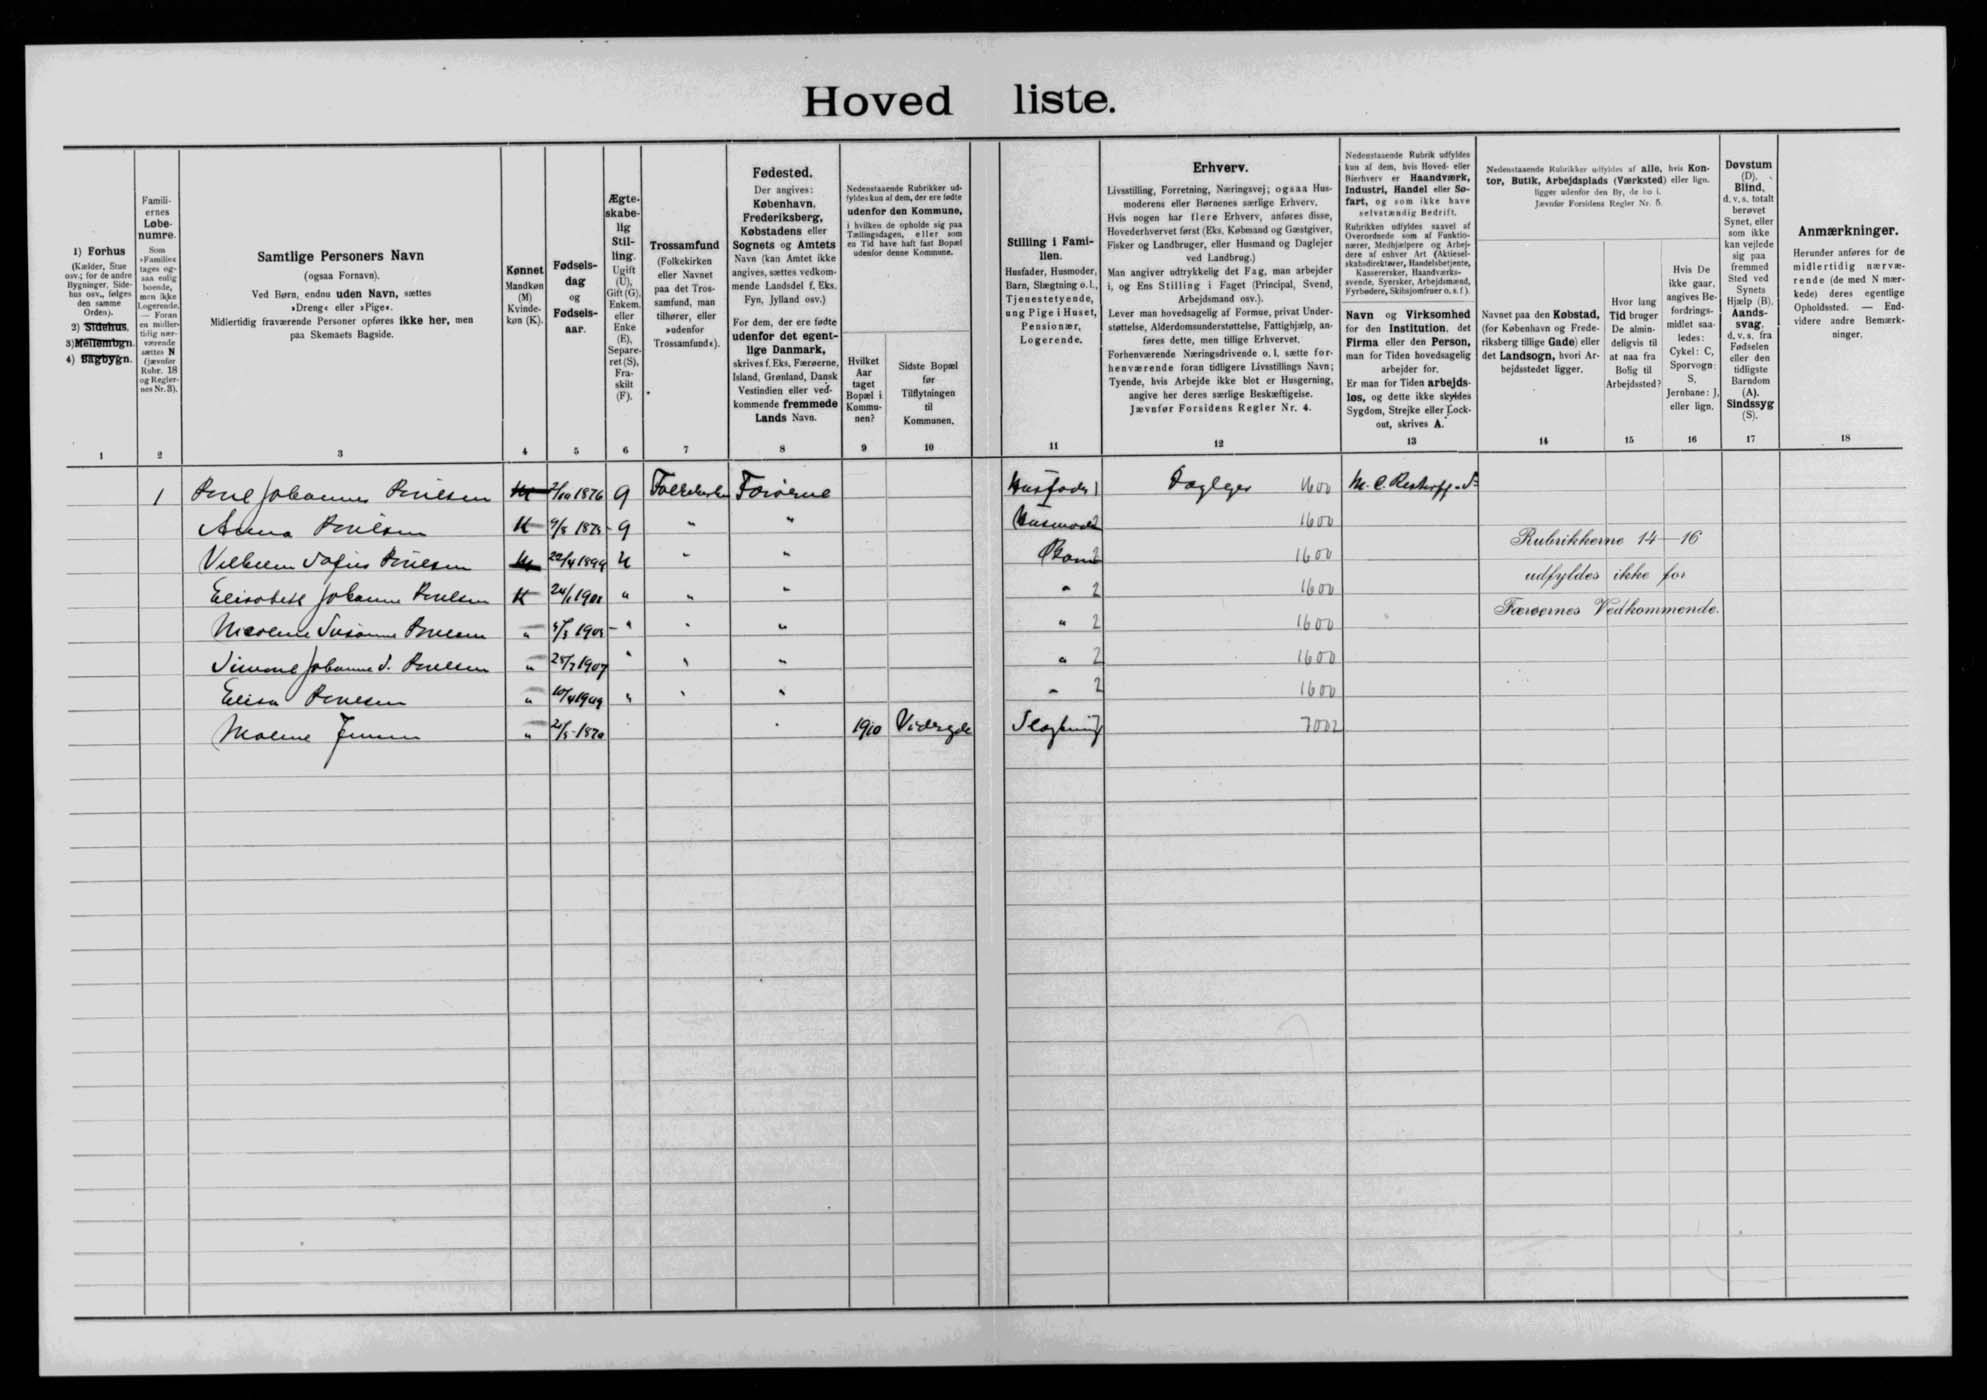 Hovedliste.
1) Forhus
(Kælder, Stue
osv.; for de andre
Bygninger, Side-
hus osv., følges
den samme
Orden).
2) Sidehus.
3) Mellembgn.
4) Bagbygn.
1
Famili-
ernes
Løbe-
numre.
Som
»Familie«
tages og-
saa enlig
boende,
men ikke
Logerende.
— Foran
en midler-
tidig nær-
værende
sættes N
(Jævnfør
Rubr. 18
og Regler-
nes Nr. 3).
2
Samtlige Personers Navn
(ogsaa Fornavn).
Ved Børn, endnu uden Navn, sættes
»Dreng« eller »Pige«.
Midlertidig fraværende Personer opføres ikke her, men
paa Skemaets Bagside.
3
Kønnet
Mandkøn
(M)
Kvinde-
køn (K).
4
Fødsels-
dag
og
Fødsels-
aar.
5
Ægte-
skabe-
lig
Stil-
ling.
Ugift
(U),
Gift (G),
Enkem.
eller
Enke
(E),
Separe-
ret (S),
Fra-
skilt
(F).
6
Trossamfund
(Folkekirken
eller Navnet
paa det Tros-
samfund, man
tilhører, eller
»udenfor
Trossamfund«).
7
Fødested.
Der angives:
København,
Frederiksberg,
Købstadens eller
Sognets og Amtets
Navn (kan Amtet ikke
angives, sættes vedkom-
mende Landsdel f. Eks.
Fyn, Jylland osv.)
For dem, der ere fødte
udenfor det egent-
lige Danmark,
skrives f. Eks. Færøerne,
Island, Grønland, Dansk
Vestindien eller ved-
kommende fremmede
Lands Navn.
8
Nedenstaaende Rubrikker ud-
fyldes kun af dem, der ere fødte
udenfor den Kommune,
i hvilken de opholde sig paa
Tællingsdagen, eller som
en Tid have haft fast Bopæl
udenfor denne Kommune.
Hvilket
Aar
taget
Bopæl i
Kommu-
nen?
9
Sidste Bopæl
før
Tilflytningen
til
Kommunen.
10
Stilling i Fami-
lien.
Husfader, Husmoder,
Barn, Slægtning o. l.,
Tjenestetyende,
ung Pige i Huset,
Pensionær,
Logerende.
11
Erhverv.
Livsstilling, Forretning, Næringsvej; ogsaa Hus-
moderens eller Børnenes særlige Erhverv.
Hvis nogen har flere Erhverv, anføres disse,
Hovederhvervet først (Eks. Købmand og Gæstgiver,
Fisker og Landbruger, eller Husmand og Daglejer
ved Landbrug.)
Man angiver udtrykkelig det Fag, man arbejder
i, og Ens Stilling i Faget (Principal, Svend,
Arbejdsmand osv.).
Lever man hovedsagelig af Formue, privat Under-
støttelse, Alderdomsunderstøttelse, Fattighjælp, an-
føres dette, men tillige Erhvervet.
Forhenværende Næringsdrivende o. l. sætte for-
henværende foran tidligere Livsstillings Navn;
Tyende, hvis Arbejde ikke blot er Husgerning,
angive her deres særlige Beskæftigelse.
Jævnfør Forsidens Regler Nr. 4.
12
Nedenstaaende Rubrik udfyldes
kun af dem, hvis Hoved- eller
Bierhverv er Haandværk,
Industri, Handel eller Sø-
fart, og som ikke have
selvstændig Bedrift.
Rubrikken udfyldes saavel af
Overordsede som af Funktio-
nærer, Medhjælpere og Arbej-
dere af enhver Art (Aktiesel-
skabsdirektører, Handelsbetjente,
Kasserersker, Haandværks-
svende, Syersker, Arbejdsmænd,
Fyrbødere, Skibsjomfruer o. s. f.).
Navn og Virksomhed
for den Institution, det
Firma eller den Person,
man for Tiden hovedsagelig
arbejder for.
Er man for Tiden arbejds-
løs, og dette ikke skyldes
Sygdom, Strejke eller Lock-
out, skrives A.
13
Nedenstaaende Rubrikker udfyldes af alle, hvis Kon-
tor, Butik, Arbejdsplads (Værksted) eller lign.
ligger udenfor den By, de bo i.
Jævnfør Forsidens Regler Nr. 5.
Navnet paa den Købstad,
(for København og Frede-
riksberg tillige Gade) eller
det Landsogn, hvori Ar-
bejdsstedet ligger.
14
Hvor lang
Tid bruger
De almin-
deligvis til
at naa fra
Bolig til
Arbejdssted?
15
Hvis De
ikke gaar,
angives Be-
fordrings-
midlet saa-
ledes:
Cykel: C,
Sporvogn:
S,
Jernbane: J,
eller lign.
16
Døvstum
(D).
Blind,
d. v. s. totalt
berøvet
Synet, eller
som ikke
kan vejlede
sig paa
fremmed
Sted ved
Synets
Hjælp (B).
Aands-
svag,
d. v. s. fra
Fødselen
eller den
tidligste
Barndom
(A).
Sindssyg
(S).
17
Anmærkninger.
Herunder anføres for de
midlertidig nærvæ-
rende (de med N mær-
kede) deres egentlige
Opholdssted. — End-
videre andre Bemærk-
ninger.
18
1 Poul Johannes Poulsen M 2/10 1876 g Folkekirken Færøerne Husfader 1 Daglejer 1600 M. C. Restorff
Anna Poulsen K 9/8 g " " Husmoder 2 1600
Vilhelm Sofus Poulsen M 22/4 1899 U " " Barn 2 1600
Elisabeth Johanne Poulsen K " " " " 2 1600
Nicoline Susanne Poulsen " " " " " 2 1600
Simone Johanne S. Poulsen " 25/7 1907 " " " " 2 1600
Elisa Poulsen " 10/4 1909 " " " " 2 1600
Malene " 1910 Slægtning 7002
Rubrikkerne 14—16
udfyldes ikke for
Færøernes Vedkommende.